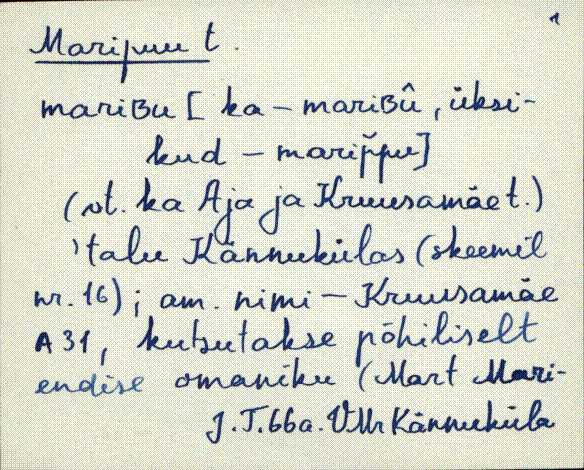 1
Maripuu t.
mariBu [ka – mariBû, üksi-
kud – marip̆pu]
(vt. ka Aja ja Kruusamäe t.)
'talu Kännukülas (skeemil
nr. 16); am. nimi – Kruusamäe
A 31, kutsutakse põhiliselt
endise omaniku (Mart Mari-
J. T. 66a. VMr Kännuküla